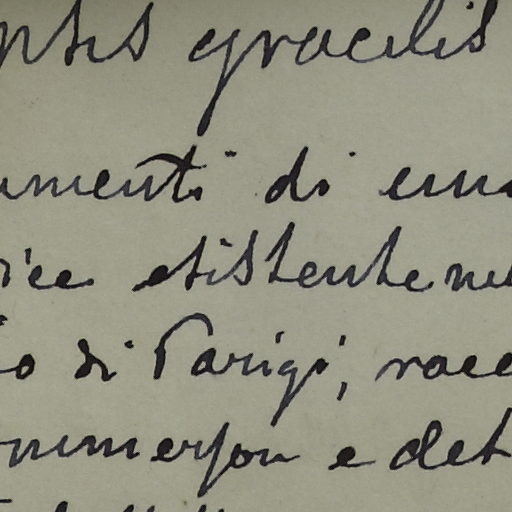 gracilis
umenti di una
ice esistente nel
io di Parigi, racc
ommerson e det